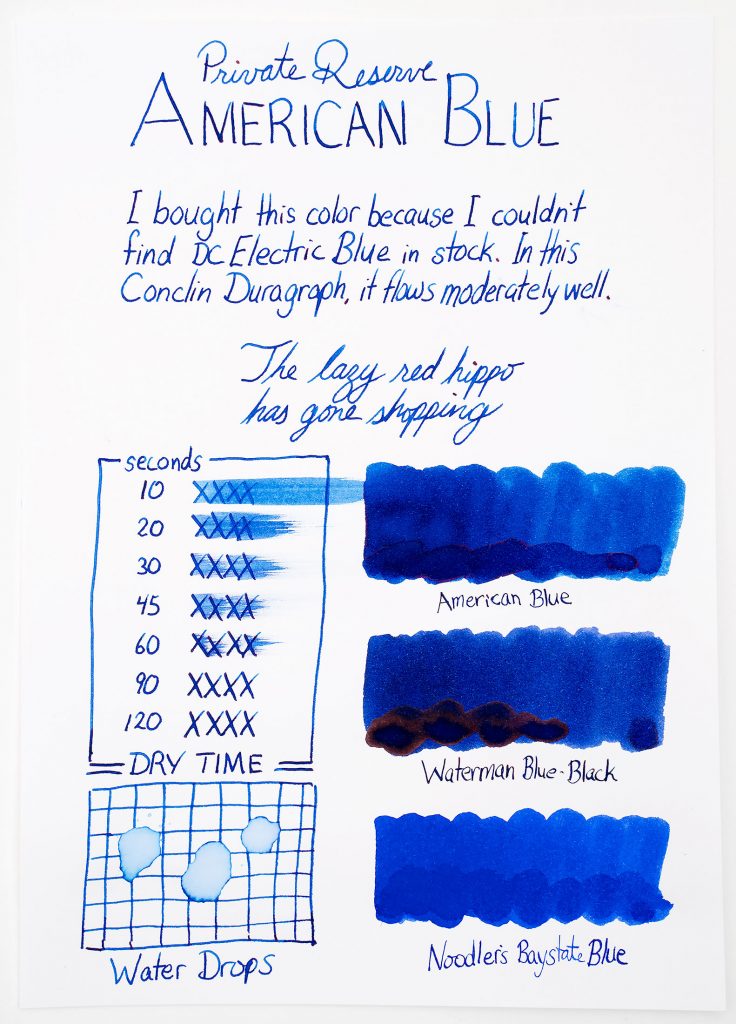 Private Reserve
AMERICAN BLUE
I bought this color because I couldn't
find DC Electric Blue in stock. In this
Conclin Duragraph, it flows moderately well.
The lazy red hippo
has gone shopping
seconds
10 XXXX
20 XXXX
30 XXXX
45 XXXX
60 XXXX
90 XXXX
120 XXXX
DRY TIME
Water Drops
American Blue
Waterman Blue-Black
Noodler's Baystate Blue